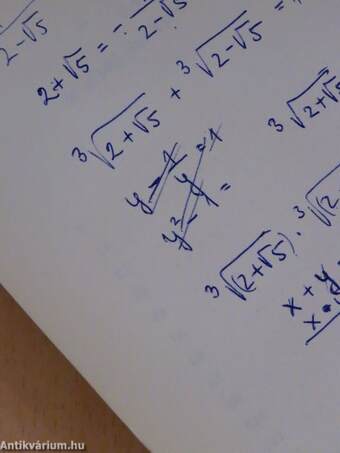 2-√5
2+√5 = - 
2-√5
³√2+√5 + ³√2-√5 =
y²-
³√2+√5
³√(2+√5) · ³√(2
x + y
x ·
Antikvárium.hu